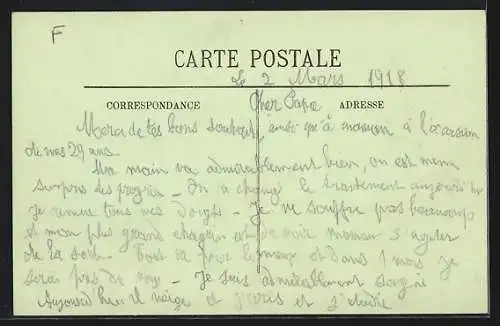 F
CARTE POSTALE
Le 2 Mars 1918
CORRESPONDANCE
ADRESSE
Cher Papa
Merci de tes bons souhaits ainsi qu'à maman à l'occasion
de mes 29 ans.
Ma main va admirablement bien, on est même
surpris des progrès - On a changé le traitement aujourd'hui
Je remue tous mes doigts - Je ne souffre pas beaucoup
et mon plus grand chagrin est de voir maman s'agiter
de la sorte. Tout va pour le mieux et dans 1 mois je
serai près de vous - Je suis admirablement soigné
Aujourd'hui il neige et j'écris et